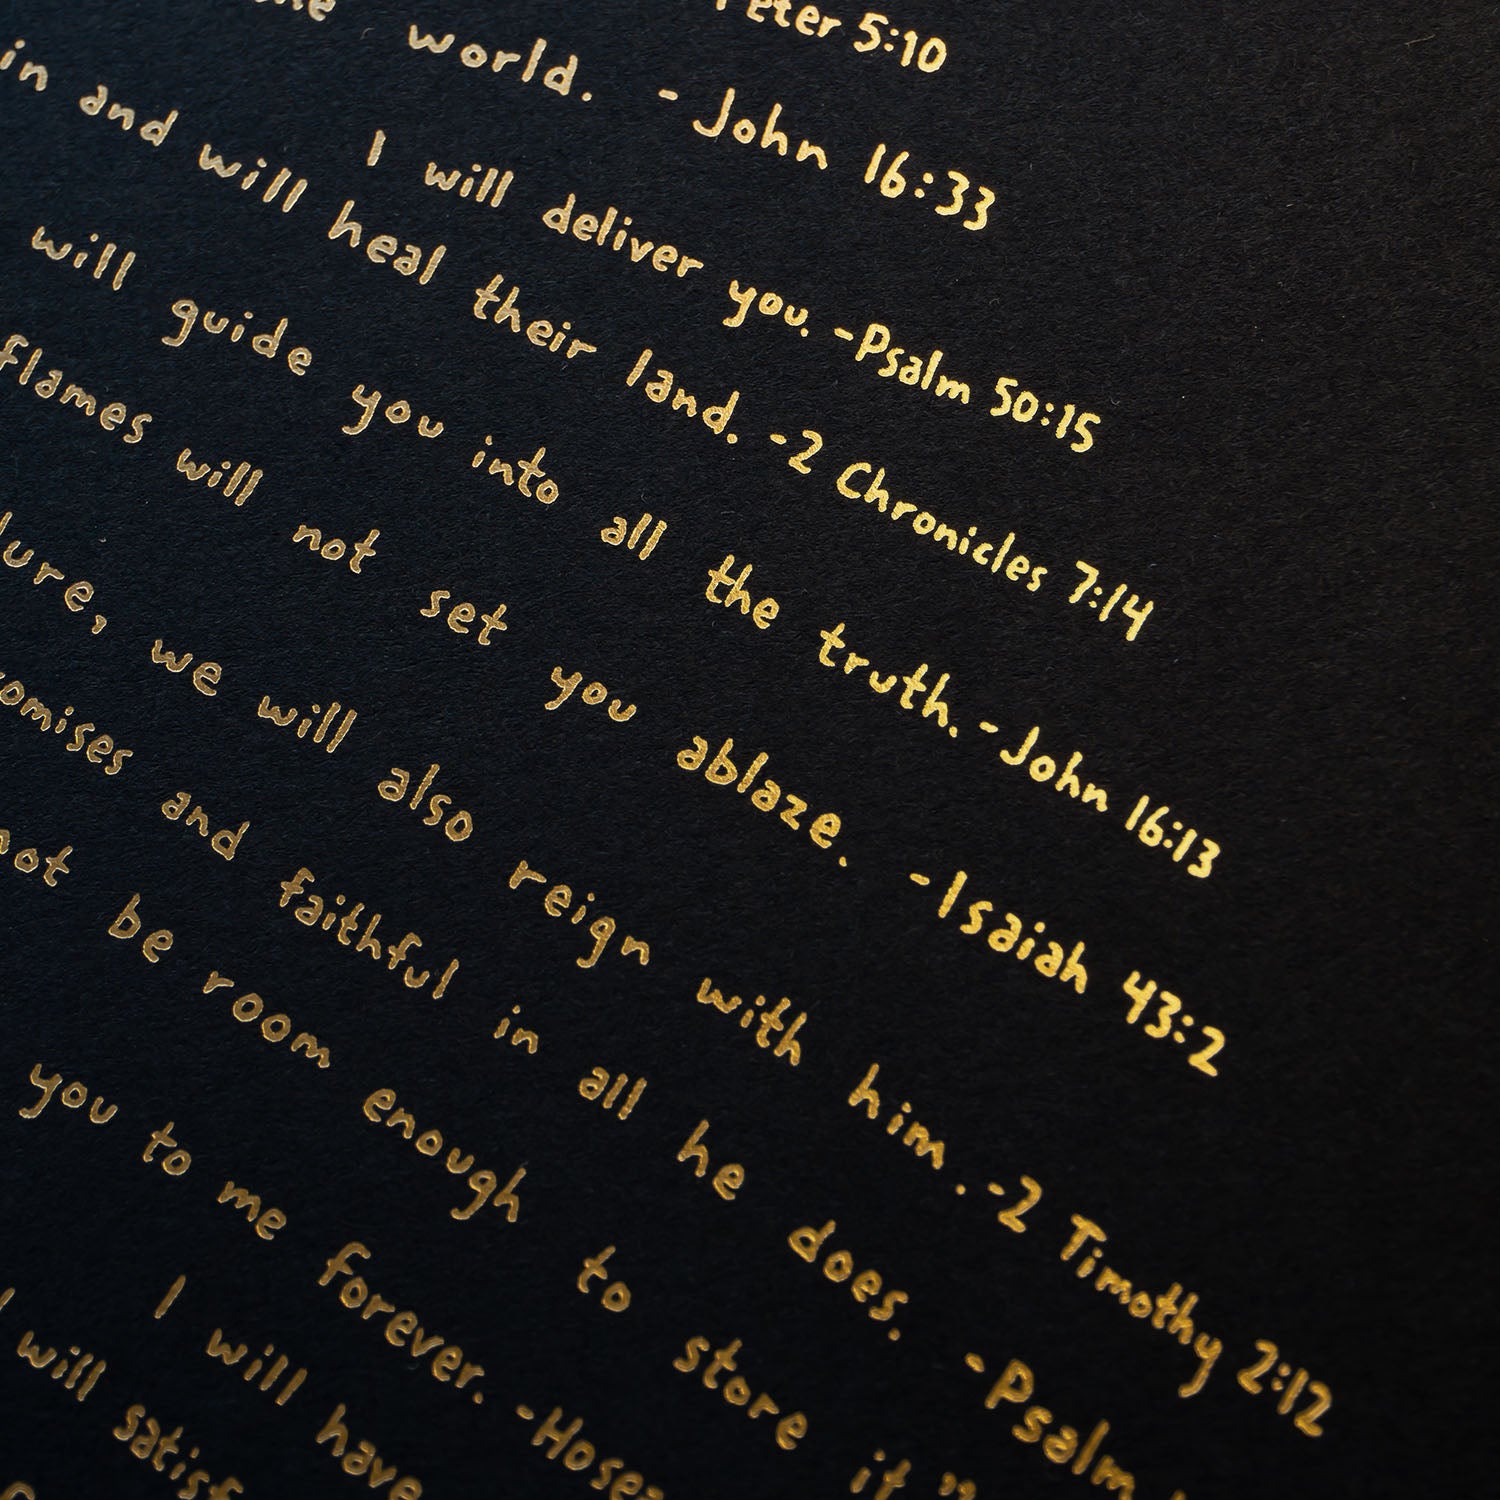 Peter 5:10
world. - John 16:33
I will deliver you. -Psalm 50:15
in and will heal their land. -2 Chronicles 7:14
will guide you into all the truth. -John 16:13
flames will not set you ablaze. -Isaiah 43:2
we will also reign with him. -2 Timothy 2:12
and faithful in all he does. -Psalm
not be room enough to store it."
you to me forever. -Hosea
I will have
will